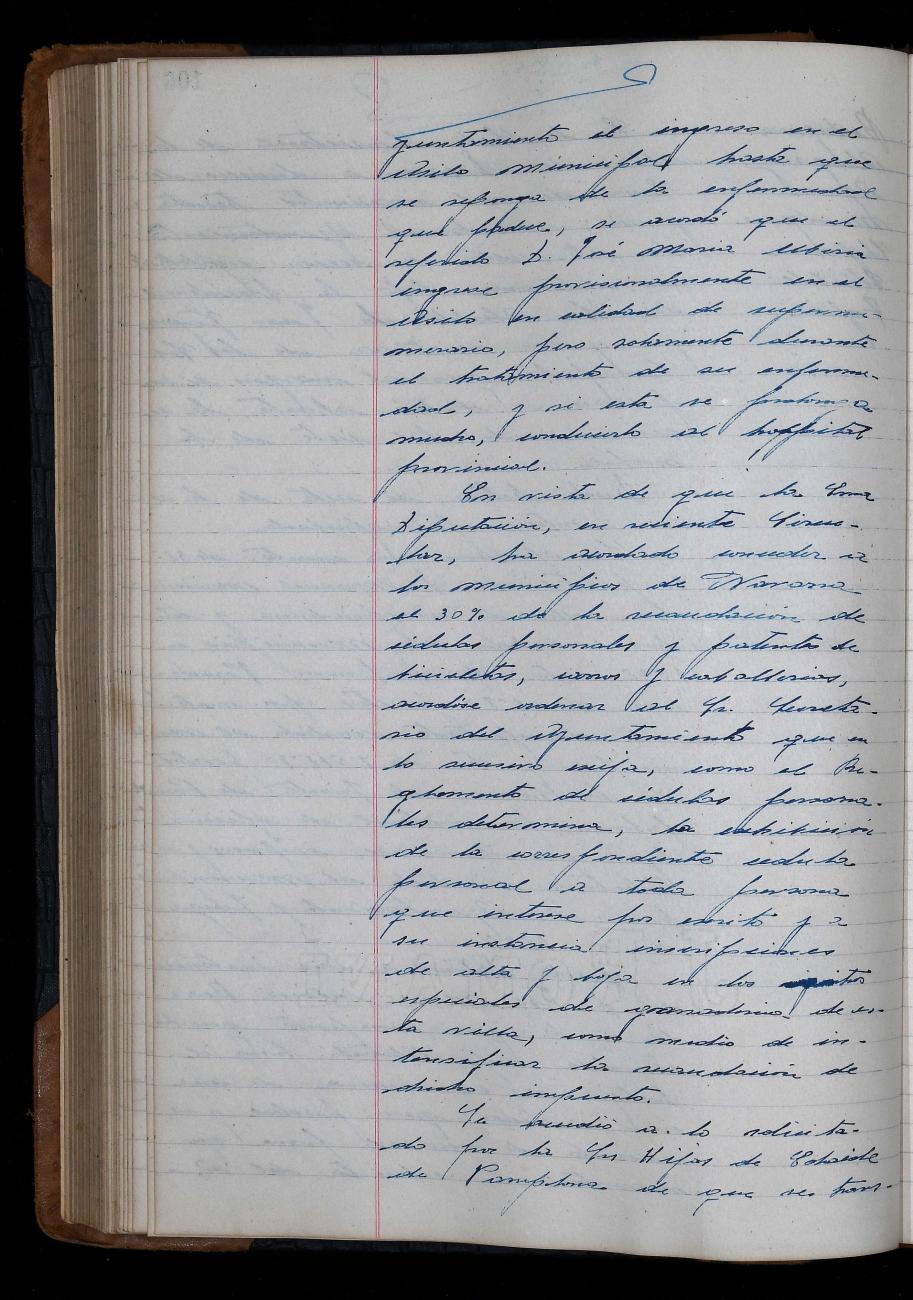 yuntamiento el ingreso en el
Asilo Municipal hasta que
se reponga de la enfermedad
que padece, se acordó que el
referido D. José Maria Ubiria
ingrese provisionalmente en el
Asilo en calidad de supernu-
merario, pero solamente durante
el tratamiento de su enferme-
dad, y si esta se prolonga
mucho, conducirlo al hospital
provincial.
En vista de que la Exma
Diputación, en reciente Circu-
lar, ha acordado conceder a
los municipios de Navarra
el 30% de la recaudación de
cédulas personales y patentes de
bicicletas, carros y caballerías,
acordóse ordenar al Sr. Secreta-
rio del Ayuntamiento que en
lo sucesivo exija, como el Re-
glamento de cédulas persona-
les determina, la exhibición
de la correspondiente cédula
personal a toda persona
que interese por escrito y a
su instancia inscripciones
de alta y baja en los
especiales de ganadería de es-
ta villa, como medio de in-
tensificar la recaudación de
dicho impuesto.
Se accedió a lo solicita-
do por la Sra Hijas de Echaide
de Pamplona de que se trans-